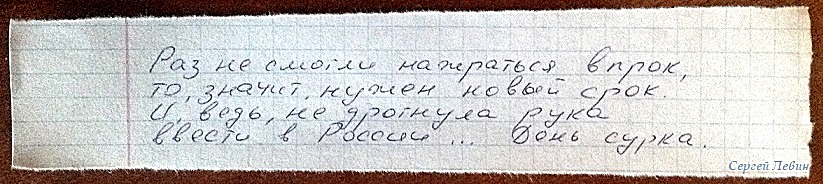 Раз не смогли нажраться впрок,
то, значит, нужен новый срок.
И, ведь, не дрогнула рука
ввести в России ... День сурка.
Сергей Левин